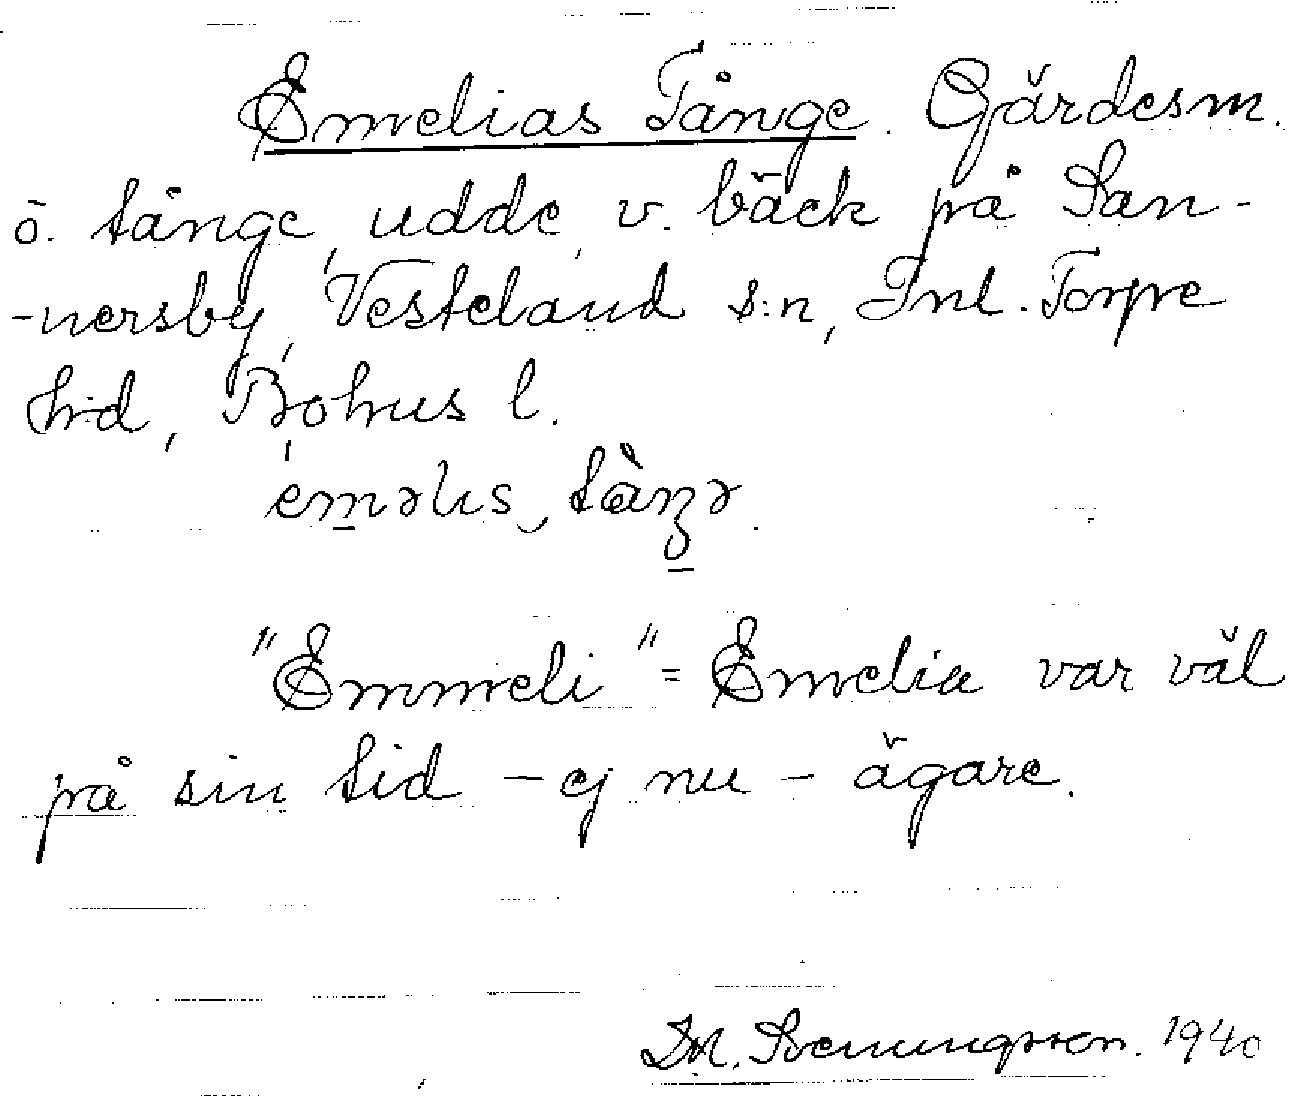 Emelias Tånge. Gärdesm.
o. tånge, udde, v. bäck på San-
-nersby, Vesteland s:n, Inl. Torpe
h:d, Bohus l.
"Emmeli" = Emelia var väl
på sin tid - ej nu - ägare.
Svenungsson. 1940